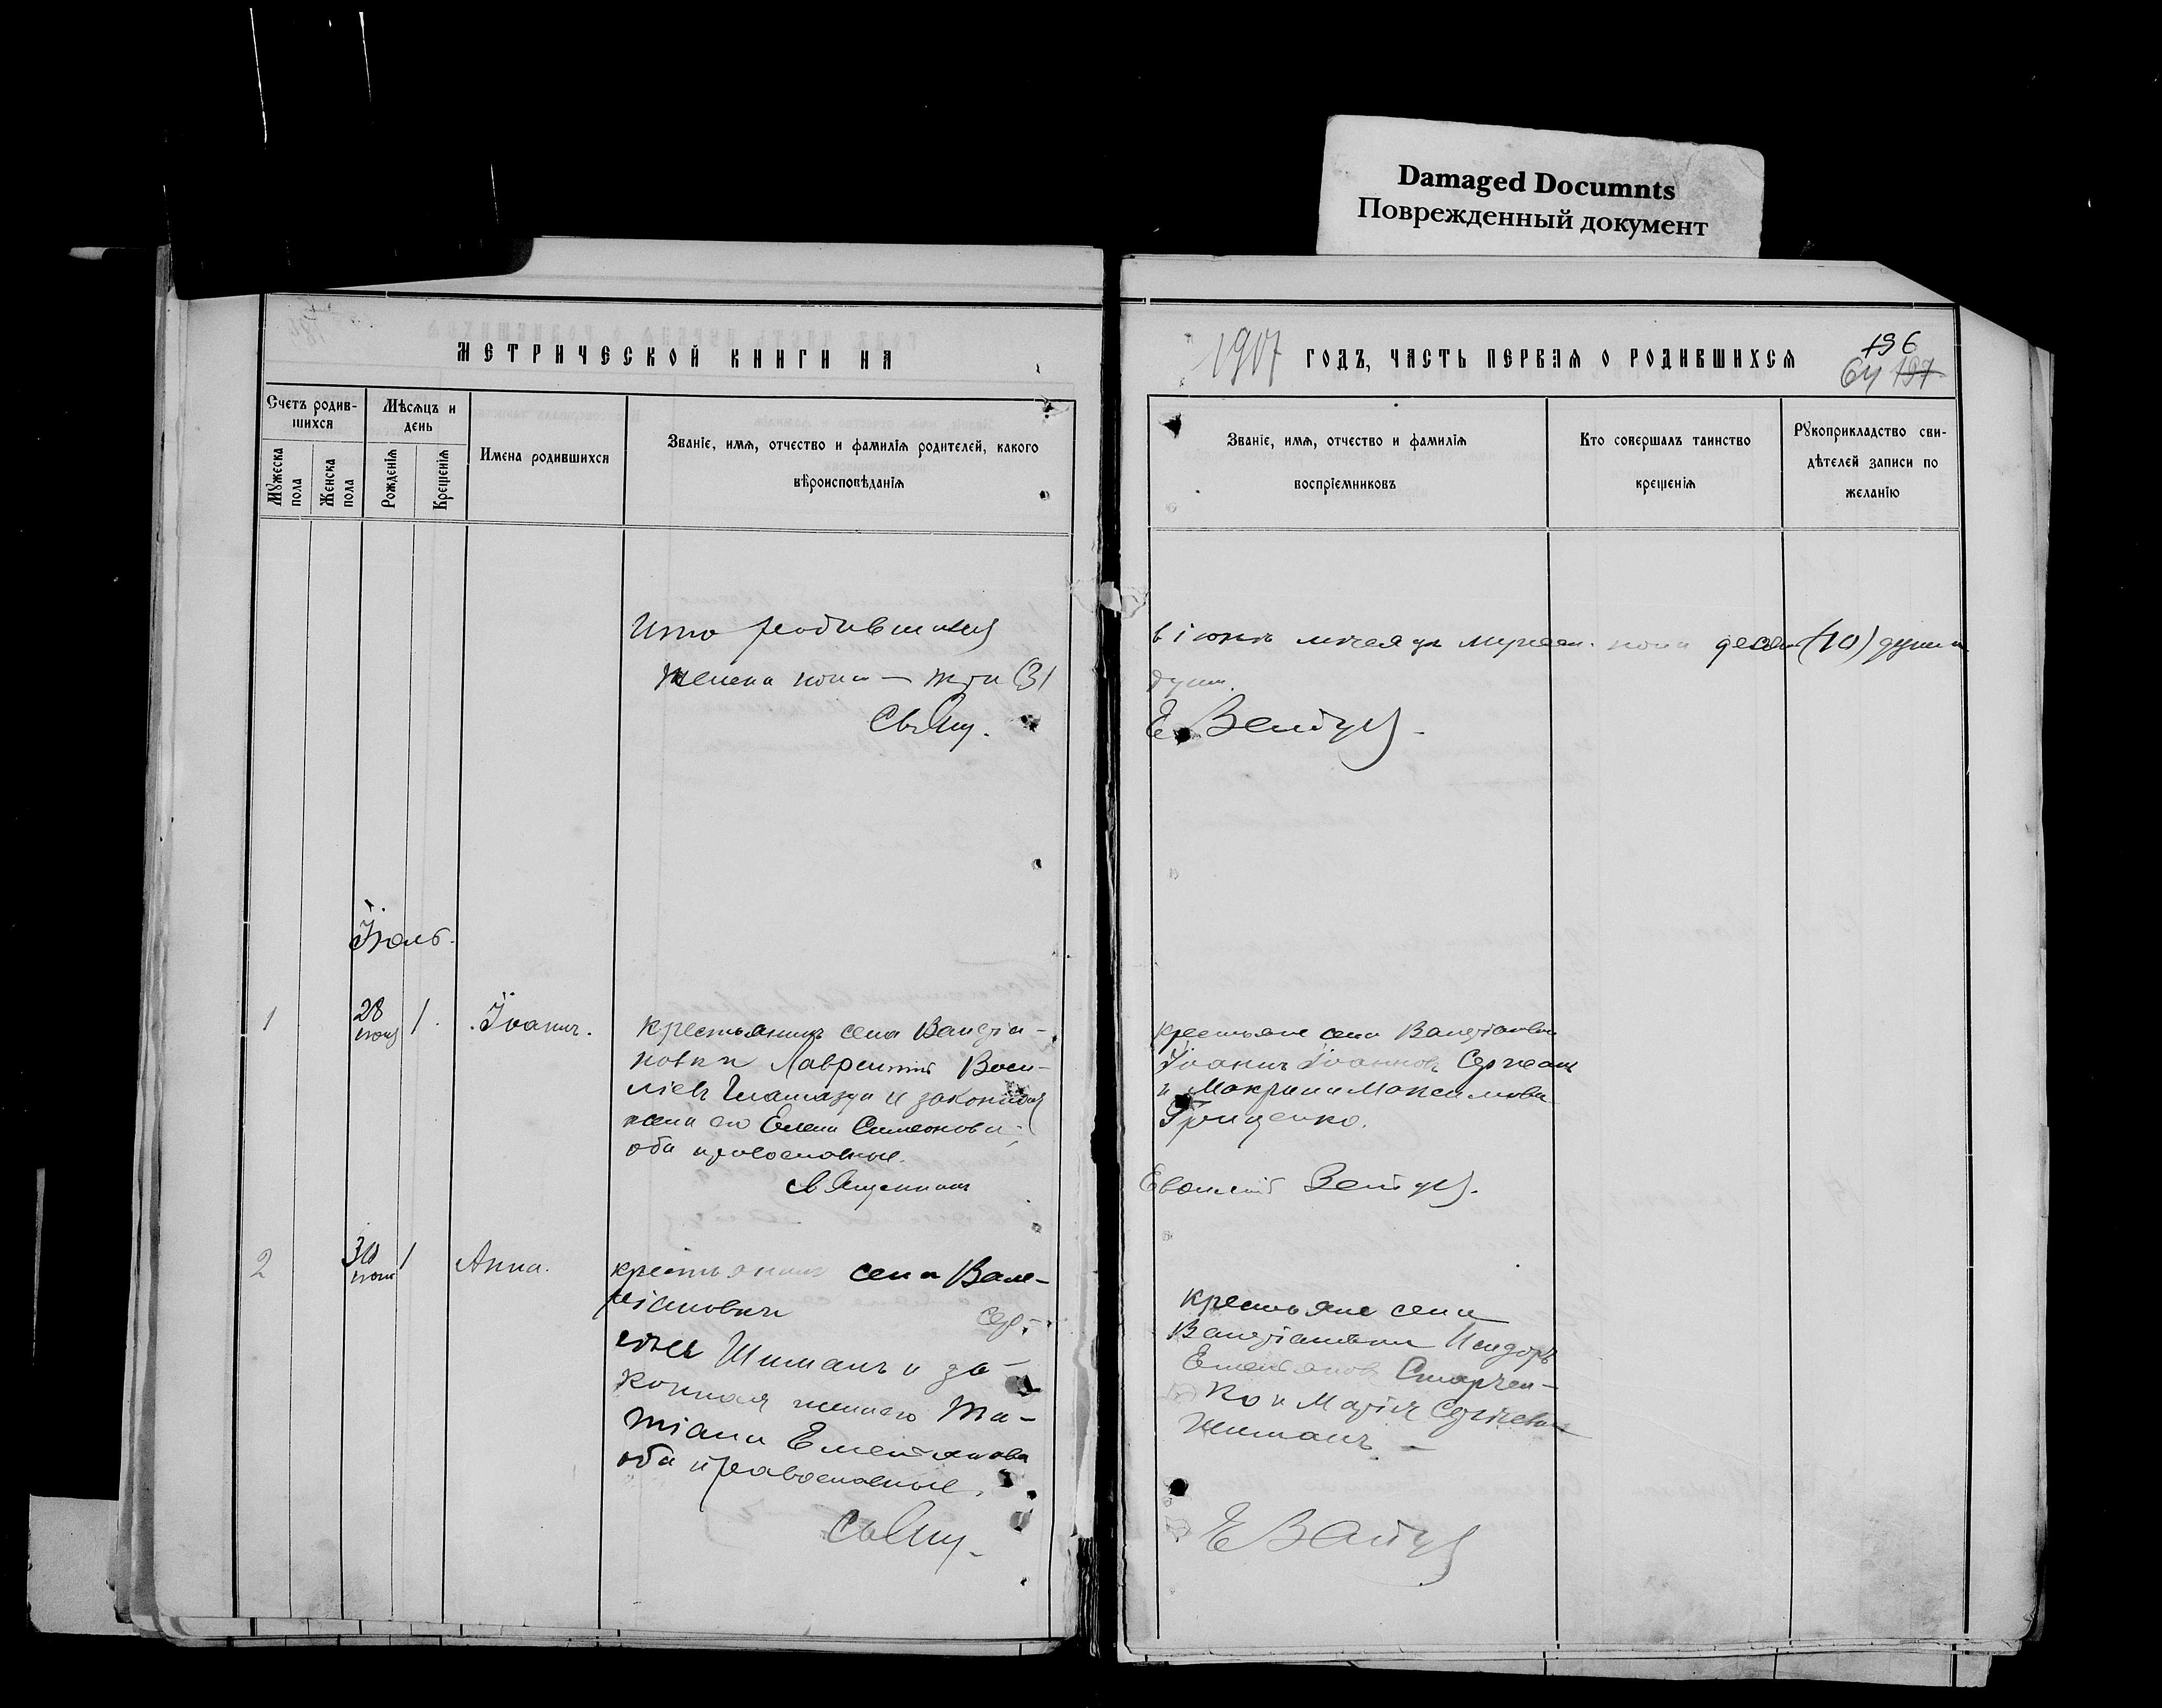 Damaged Documnts
Поврежденный документ
МЕТРИЧЕСКОЙ КНИГИ НА
1917 ГОДЪ, ЧАСТЬ ПЕРВАЯ О РОДИВШИХСЯ
196
64 197
Счетъ родив-
шихся
Мужеска
пола
Женска
пола
Мѣсяцъ и
день
Рожденія
Крещенія
Имена родившихся
Званіе, имя, отчество и фамилія родителей, какого
вѣроисповѣданія
Званіе, имя, отчество и фамилія
воспріемниковъ
Кто совершалъ таинство
крещенія
Рукоприкладство сви-
дѣтелей записи по
желанію
Итого родившихся
женска пола — три (3)
Свящ.
в іюнѣ мѣсяцѣ мужеск. пола десять (10) душ и
душ.
Е.
Іюль.
1
28
іюня
1.
Іоаннъ.
крестьянинъ села
новки Лаврентій Васи-
ліевъ и законная
жена его Елена Симеонова,
оба православные.
Священникъ
крестьяне села
Іоаннъ Іоанновъ
и Макрина Максимова
Грищенко.
Евѳимій
2
30
іюня
1
Анна.
крестьянинъ села
Сер-
гіевъ Шиманъ и за-
конная жена его Та-
тіана Емельянова
оба православные.
Свящ.
крестьяне села
Исидоръ
Емельяновъ Старчен-
ко и Марія Сергіева
Шиманъ —
Е